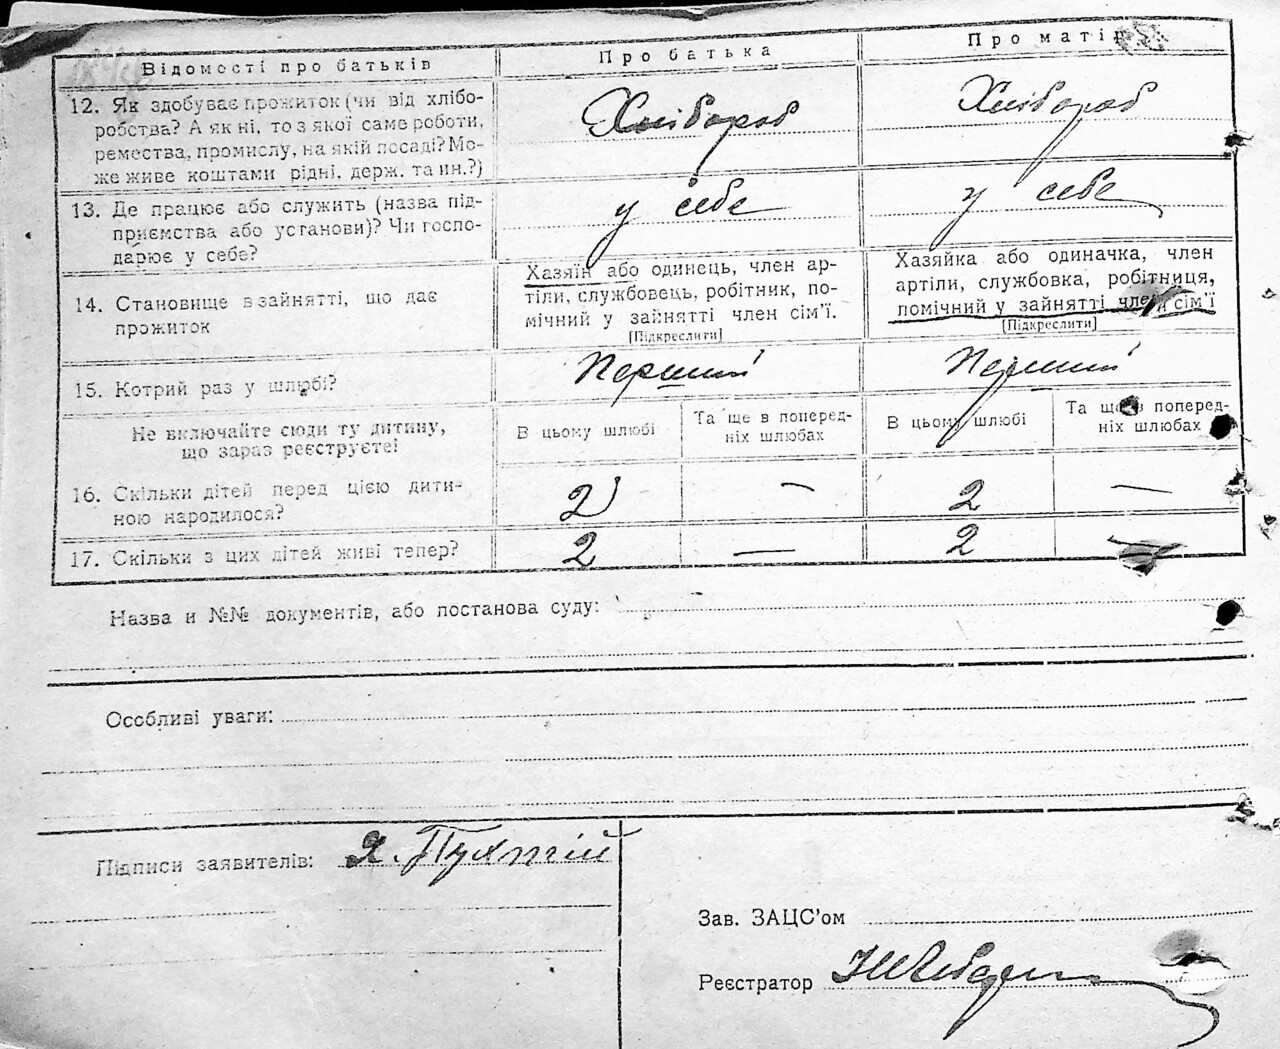 Відомості про батьків
Про батька
Про матір
12. Як здобуває прожиток (чи від хлібо-
робства? А як ні, то з якої саме роботи,
ремества, промислу, на якій посаді? Мо-
же живе коштами рідні, держ. та ин.?)
Хлібороб
Хлібороб
13. Де працює або служить (назва під-
приємства або установи)? Чи госпо-
дарює у себе?
у себе
у себе
14. Становище в зайнятті, що дає
прожиток
Хазяїн або одинець, член ар-
тіли, службовець, робітник, по-
мічний у зайнятті член сім'ї.
[Підкреслити]
Хазяйка або одиначка, член
артіли, службовка, робітниця,
помічний у зайнятті член сім'ї
[Підкреслити]
15. Котрий раз у шлюбі?
Перший
Перший
Не включайте сюди ту дитину,
що зараз реєструєте!
В цьому шлюбі
Та ще в поперед-
ніх шлюбах
В цьому шлюбі
Та ще в поперед-
ніх шлюбах
16. Скільки дітей перед цією дити-
ною народилося?
2
—
2
—
17. Скільки з цих дітей живі тепер?
2
—
2
—
Назва и №№ документів, або постанова суду:
Особливі уваги:
Підписи заявителів:
Зав. ЗАЦС'ом
Реєстратор